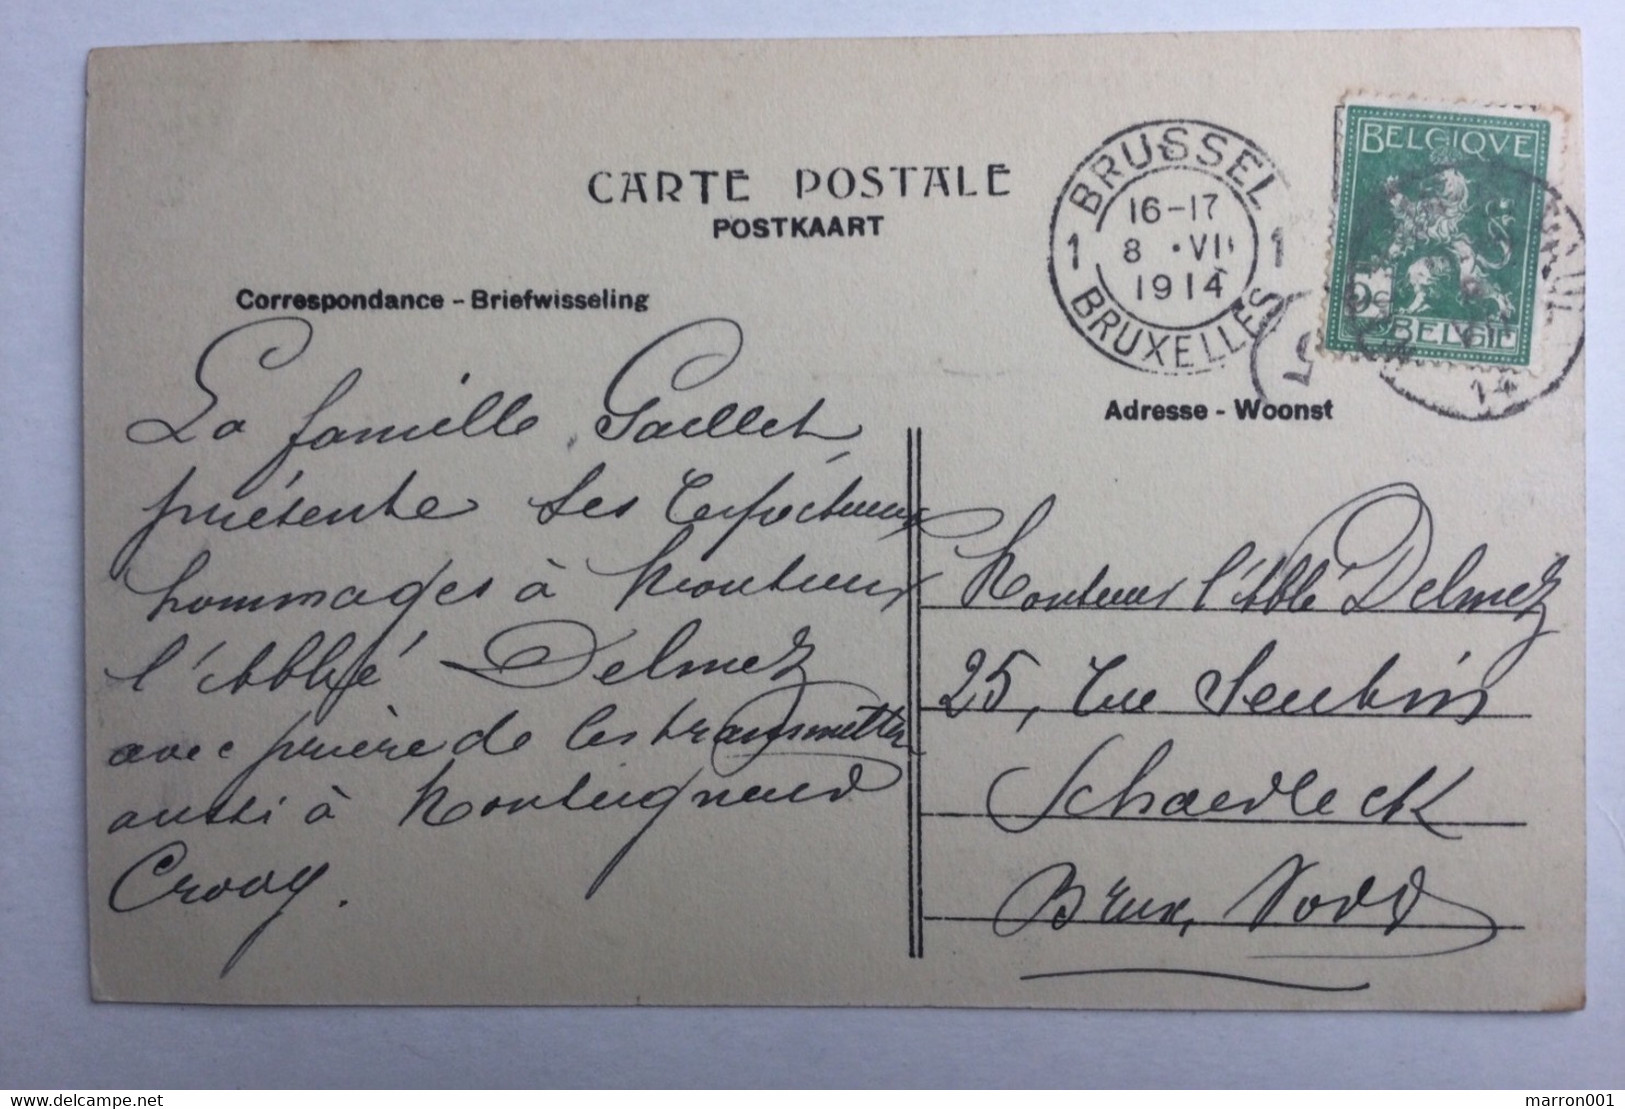 CARTE POSTALE
POSTKAART
BRUSSEL
16-17
8 • VII
1914
1 1
BRUXELLES
BELGIQVE
5c
BELGIE
5
14
Correspondance - Briefwisseling
Adresse - Woonst
La famille Gaillet,
présente ses respectueux
hommages à Monsieur
l'Abbé Delmez
avec prière de les transmettre
aussi à Monseigneur
Crooy.
Monsieur l'Abbé Delmez
25, rue Seutin
Schaerbeck
Brux, Nord
delcampe.net
marron001